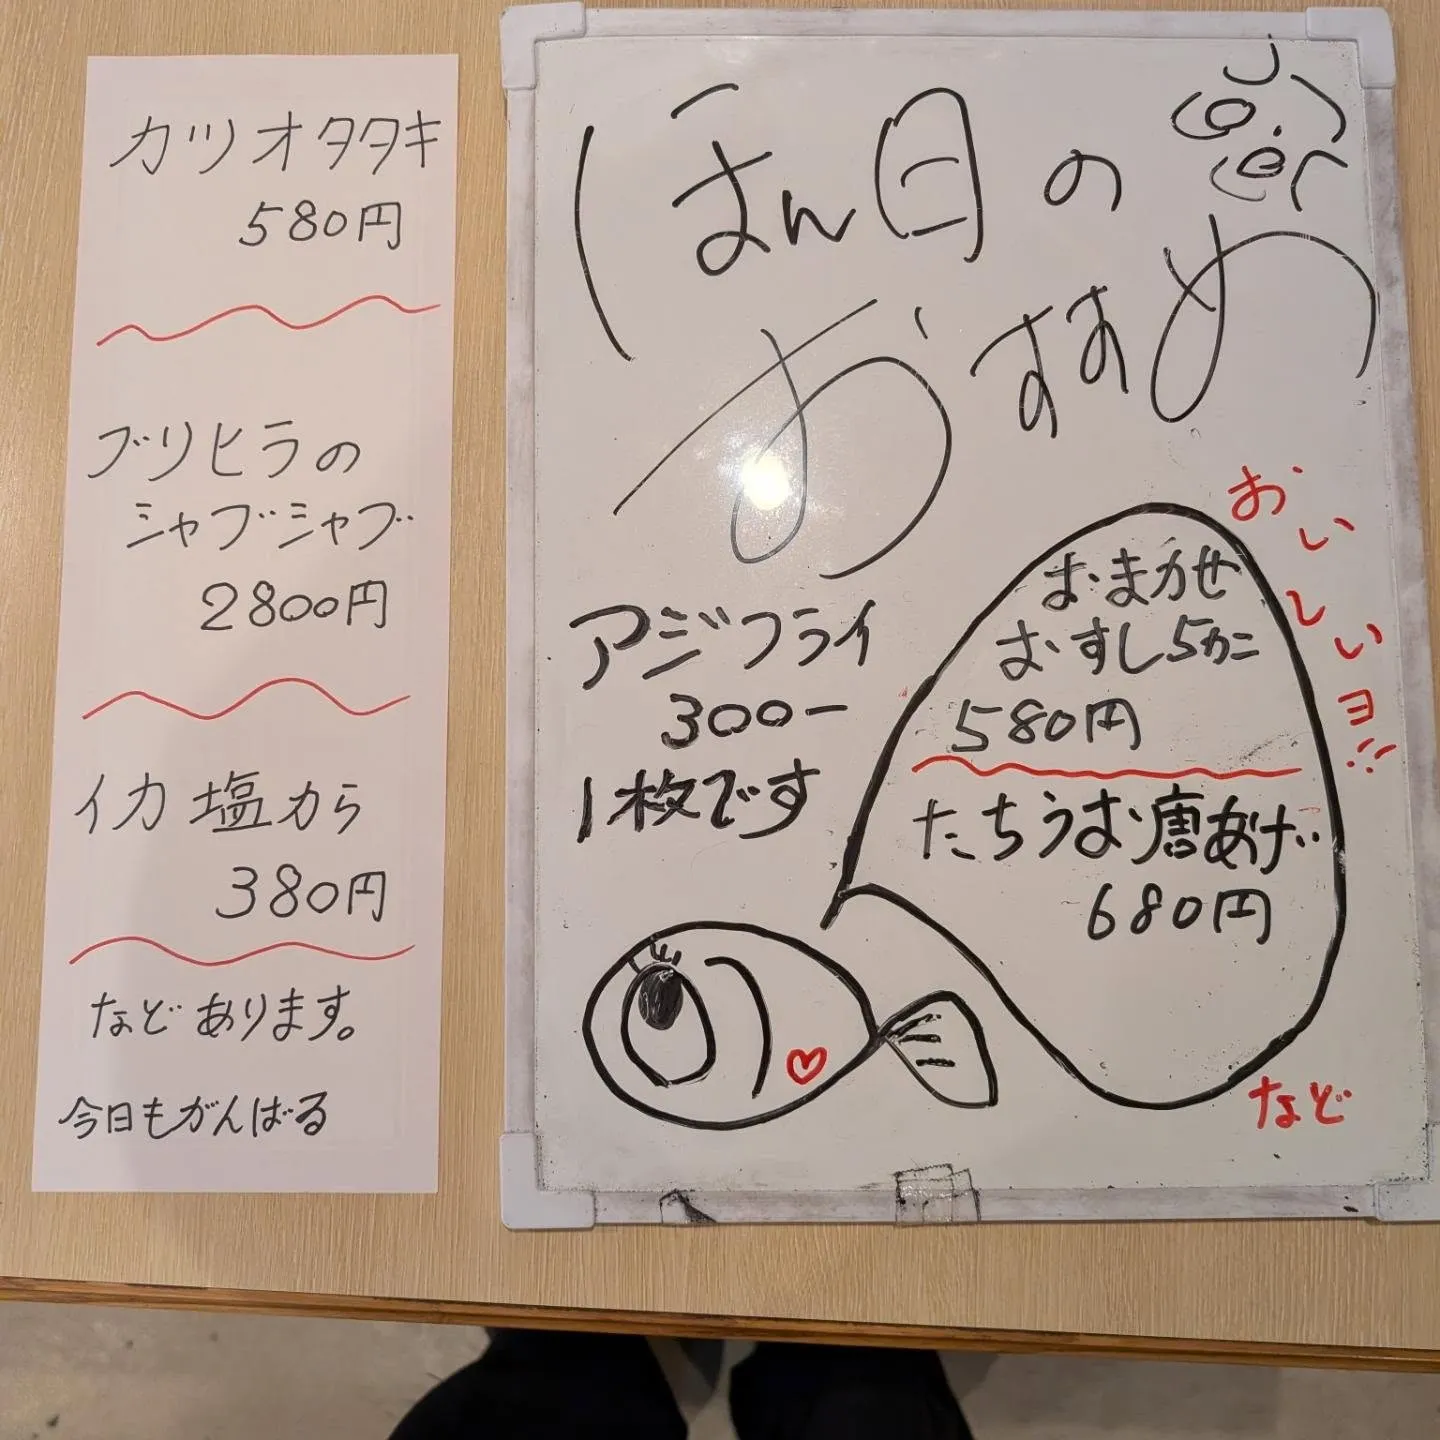 カツオタタキ
580円
ブリヒラの
シャブシャブ
2800円
イカ塩から
380円
などあります。
今日もがんばる
ほん日の
おすすめ
アジフライ
300ー
1枚です
おまかせ
おすし5カニ
580円
たちうお唐あげ
680円
おいしいヨ!!
など